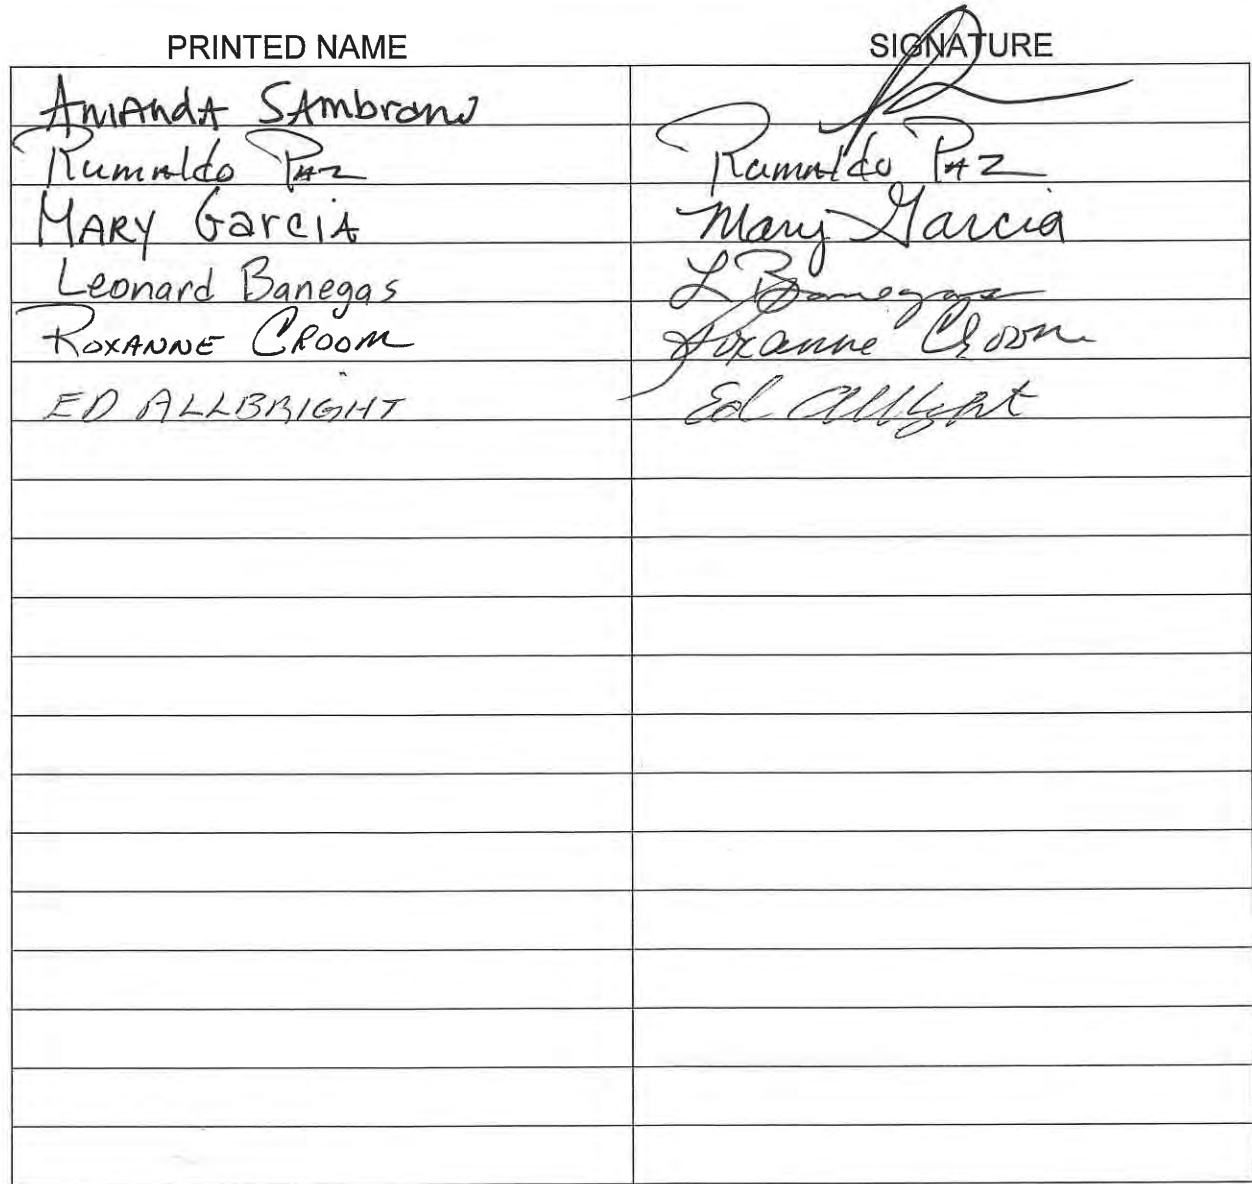 PRINTED NAME SIGNATURE
AmAndA SAmbrano
Rumaldo PAZ Rumaldo PAZ
MARY GarciA Mary Garcia
Leonard Banegas L Banegas
ROXANNE CROOM Roxanne Croom
ED ALLBRIGHT Ed Allbright